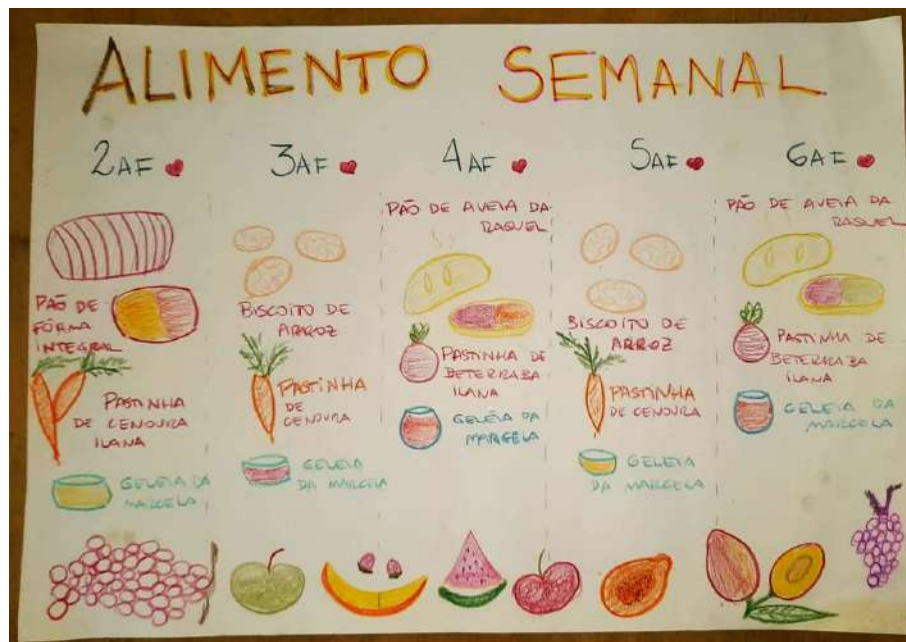 ALIMENTO SEMANAL
2AF
PÃO DE
FÔRMA
INTEGRAL
PASTINHA
DE CENOURA
ILANA
GELEIA DA
MARCELA
3AF
BISCOITO DE
ARROZ
PASTINHA
DE
CENOURA
GELEIA
DA MARCELA
4AF
PÃO DE AVEIA DA
RAQUEL
PASTINHA DE
BETERRABA
ILANA
GELÉIA DA
MARCELA
5AF
BISCOITO DE
ARROZ
PASTINHA
DE CENOURA
GELEIA
DA MARCELA
6AF
PÃO DE AVEIA DA
RAQUEL
PASTINHA DE
BETERRABA
ILANA
GELEIA DA
MARCELA